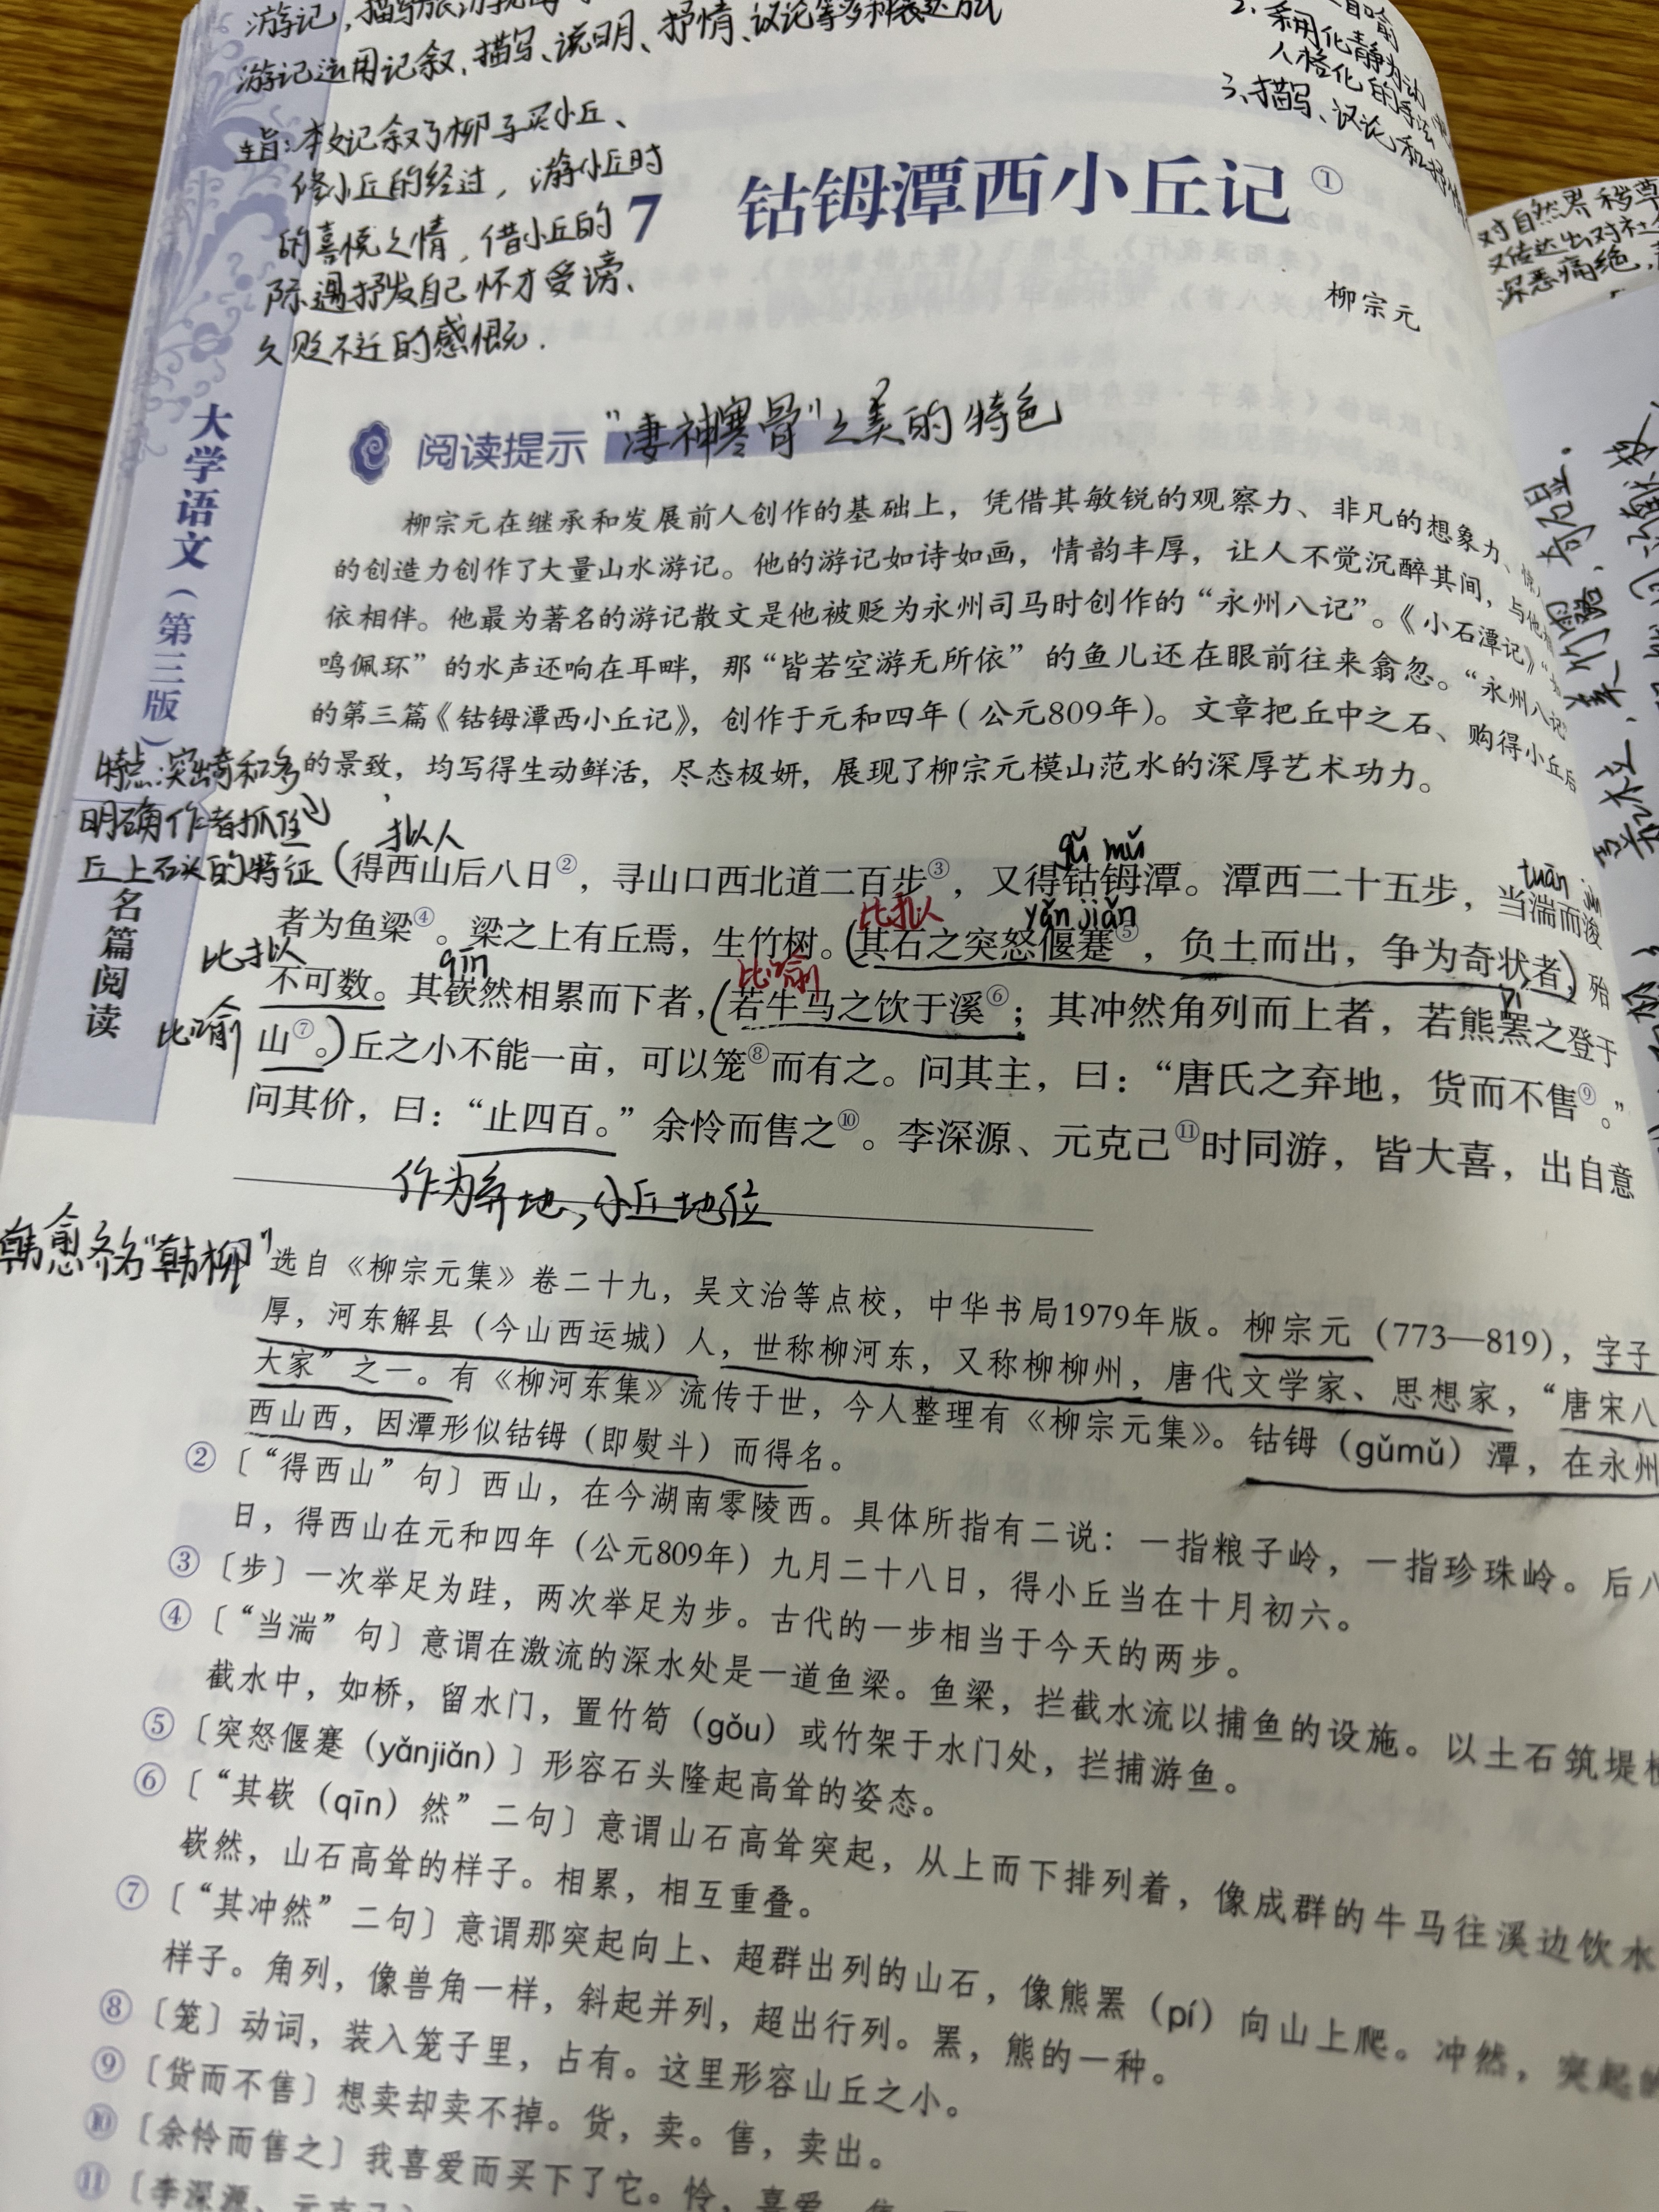 游记，描写旅游
游记运用记叙、描写、说明、抒情、议论等多种表达方式
主旨：本文记叙了柳与买小丘、
修小丘的经过，游小丘时
的喜悦之情，借小丘的
际遇抒发自己怀才受谤、
久贬不迁的感慨．
自喻
2、采用化静为动
人格化的手法
3、描写、议论和抒情
对自然界
又传达出对社
深恶痛绝，
7 钴鉧潭西小丘记①
柳宗元
阅读提示 “凄神寒骨”之美的特色
柳宗元在继承和发展前人创作的基础上，凭借其敏锐的观察力、非凡的想象力、
的创造力创作了大量山水游记。他的游记如诗如画，情韵丰厚，让人不觉沉醉其间，与他
依相伴。他最为著名的游记散文是他被贬为永州司马时创作的“永州八记”。《小石潭记》“如
鸣佩环”的水声还响在耳畔，那“皆若空游无所依”的鱼儿还在眼前往来翕忽。“永州八记”
的第三篇《钴鉧潭西小丘记》，创作于元和四年（公元809年）。文章把丘中之石、购得小丘后
的景致，均写得生动鲜活，尽态极妍，展现了柳宗元模山范水的深厚艺术功力。
大学语文（第三版）
特点：突出奇和多
明确作者抓住
丘上石头的特征
名篇阅读
拟人
gǔ mǔ
tuān
（得西山后八日②，寻山口西北道二百步③，又得钴鉧潭。潭西二十五步，当湍而浚
比拟人
yǎn jiǎn
者为鱼梁④。梁之上有丘焉，生竹树。（其石之突怒偃蹇⑤，负土而出，争为奇状者），殆
比拟
qīn
比喻
不可数。其嵚然相累而下者，（若牛马之饮于溪⑥；其冲然角列而上者，若熊罴之登于
pí
比喻
山⑦。）丘之小不能一亩，可以笼⑧而有之。问其主，曰：“唐氏之弃地，货而不售⑨。”
问其价，曰：“止四百。”余怜而售之⑩。李深源、元克己⑪时同游，皆大喜，出自意
作为弃地，小丘地位
韩愈齐名“韩柳”
选自《柳宗元集》卷二十九，吴文治等点校，中华书局1979年版。柳宗元（773—819），字子
厚，河东解县（今山西运城）人，世称柳河东，又称柳柳州，唐代文学家、思想家，“唐宋八
大家”之一。有《柳河东集》流传于世，今人整理有《柳宗元集》。钴鉧（gǔmǔ）潭，在永州
西山西，因潭形似钴鉧（即熨斗）而得名。
②〔“得西山”句〕西山，在今湖南零陵西。具体所指有二说：一指粮子岭，一指珍珠岭。后八
日，得西山在元和四年（公元809年）九月二十八日，得小丘当在十月初六。
③〔步〕一次举足为跬，两次举足为步。古代的一步相当于今天的两步。
④〔“当湍”句〕意谓在激流的深水处是一道鱼梁。鱼梁，拦截水流以捕鱼的设施。以土石筑堤横
截水中，如桥，留水门，置竹笱（gǒu）或竹架于水门处，拦捕游鱼。
⑤〔突怒偃蹇（yǎnjiǎn）〕形容石头隆起高耸的姿态。
⑥〔“其嵚（qīn）然”二句〕意谓山石高耸突起，从上而下排列着，像成群的牛马往溪边饮水
嵚然，山石高耸的样子。相累，相互重叠。
⑦〔“其冲然”二句〕意谓那突起向上、超群出列的山石，像熊罴（pí）向山上爬。冲然，突起的
样子。角列，像兽角一样，斜起并列，超出行列。罴，熊的一种。
⑧〔笼〕动词，装入笼子里，占有。这里形容山丘之小。
⑨〔货而不售〕想卖却卖不掉。货，卖。售，卖出。
⑩〔余怜而售之〕我喜爱而买下了它。怜，喜爱。售，
⑪〔李深源、元克己〕